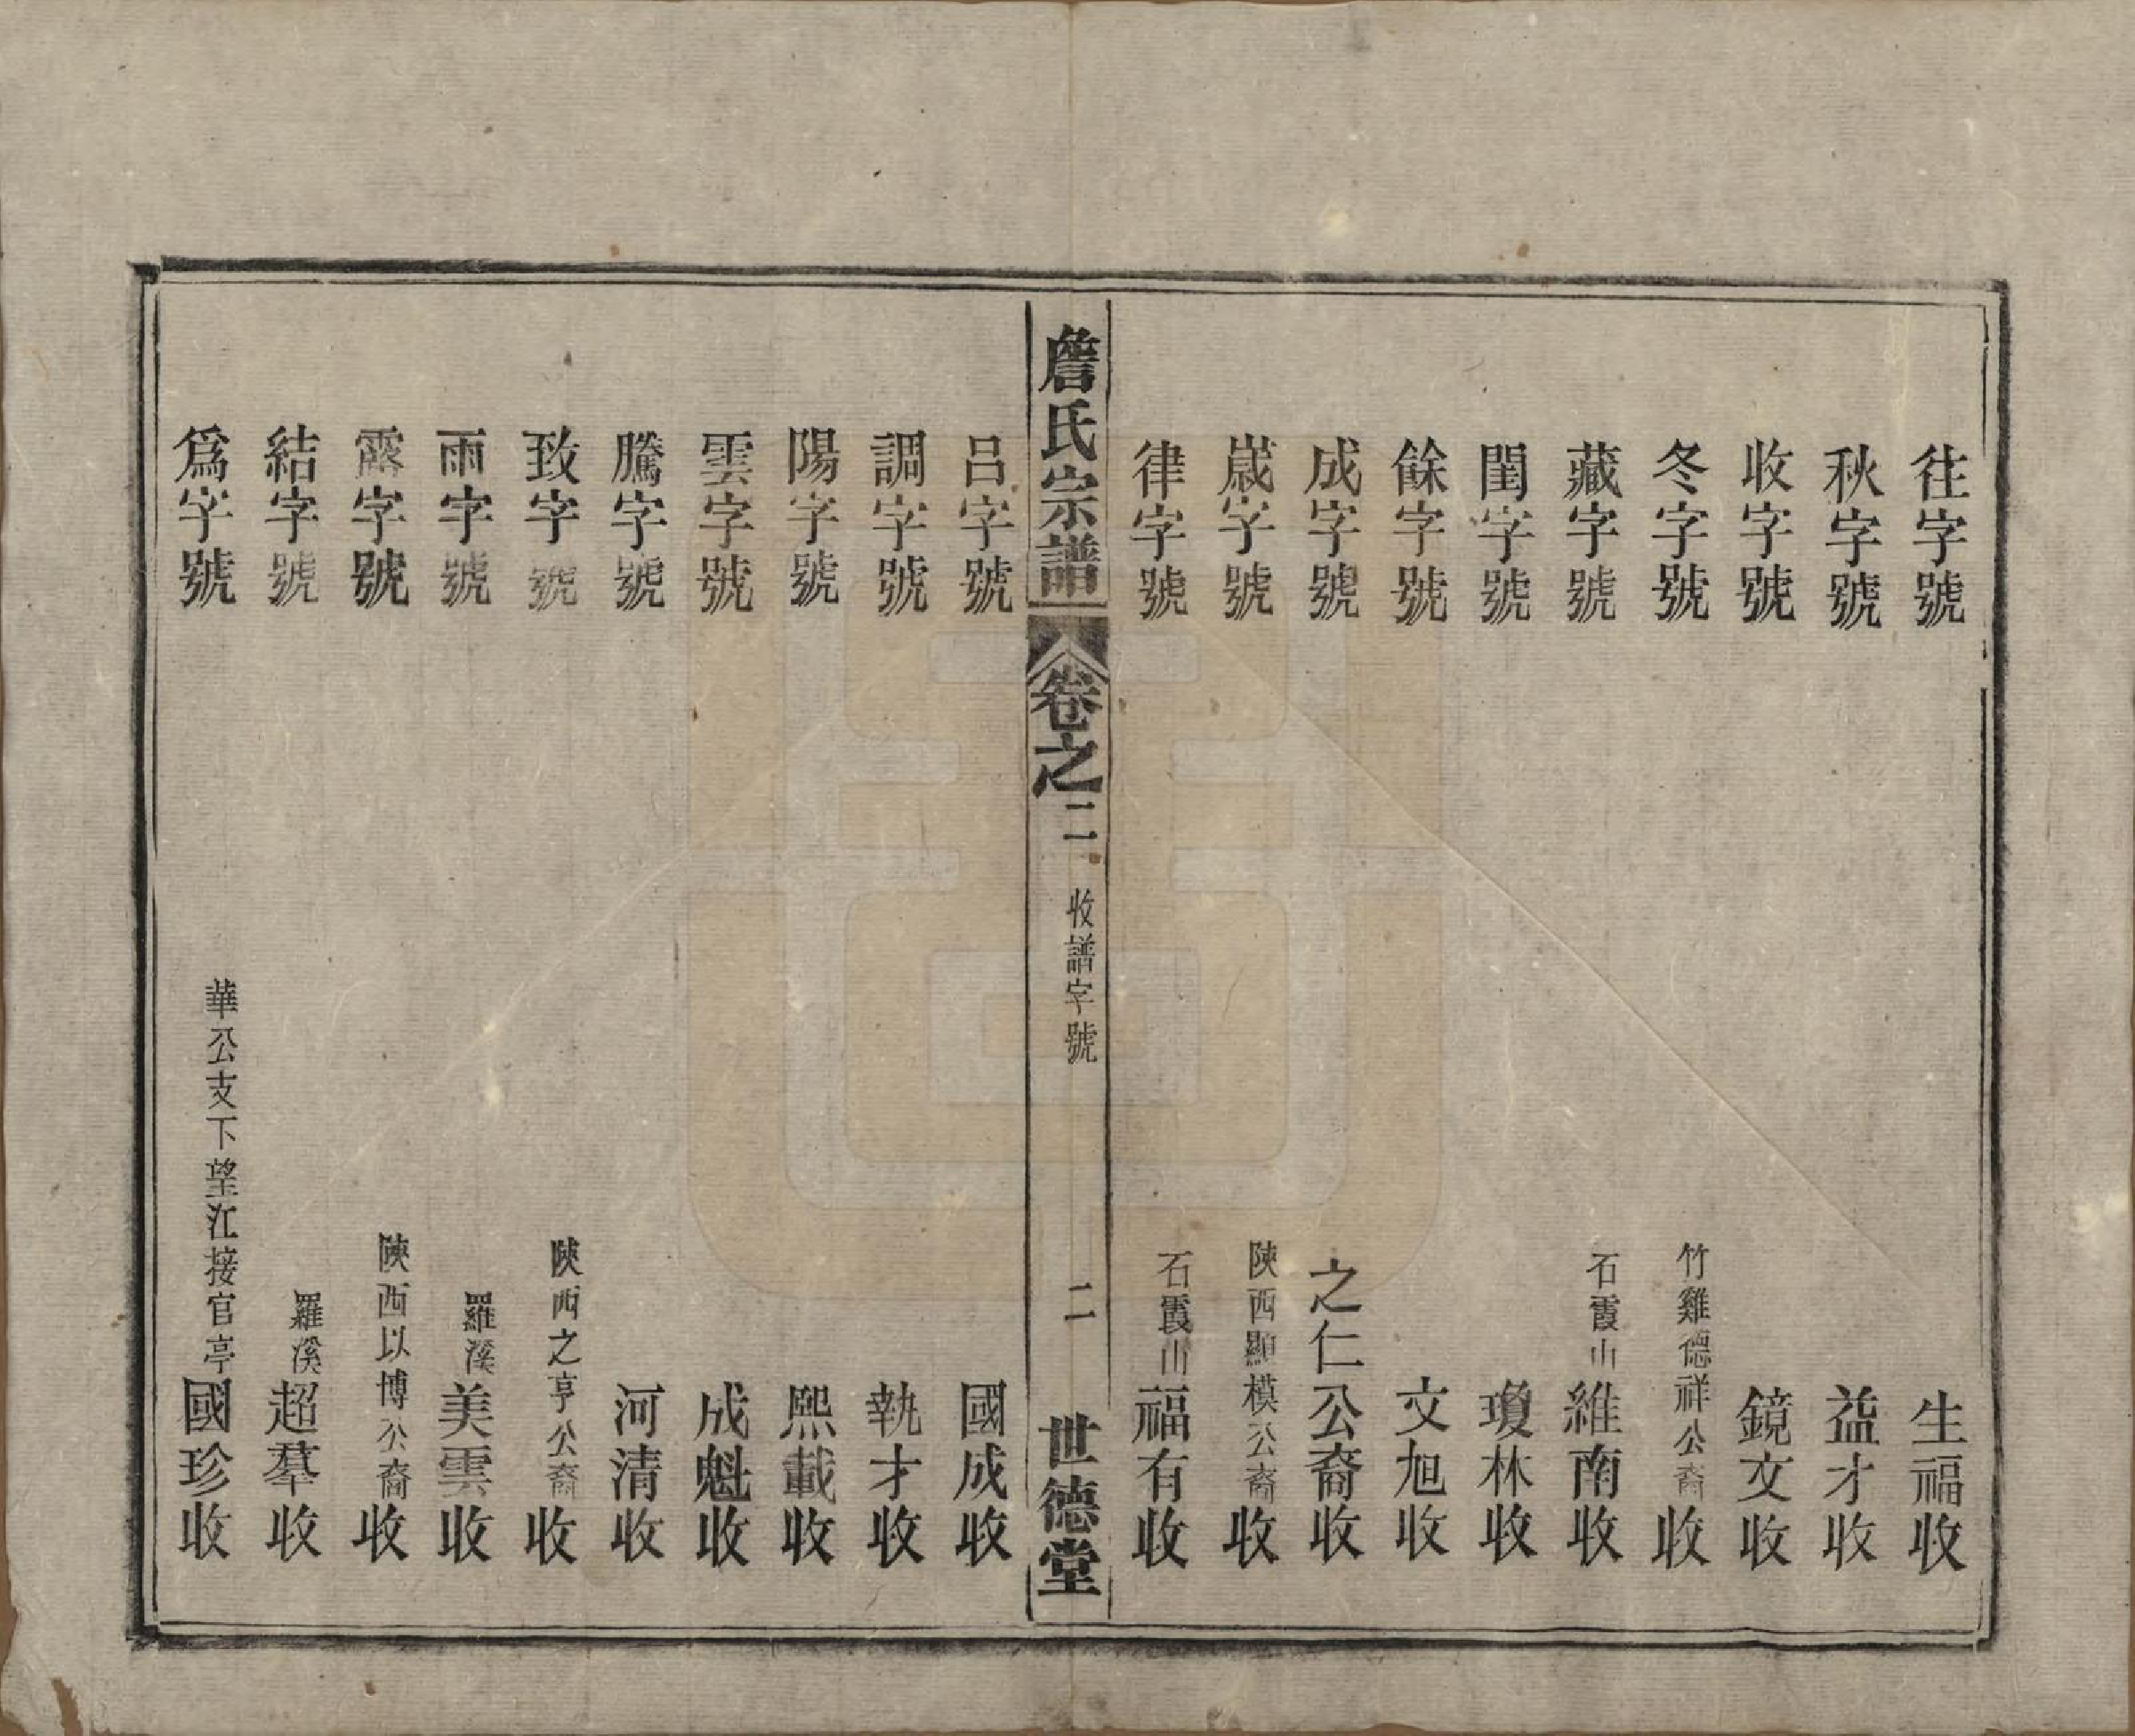 往字號 生福收
秋字號 益才收
收字號 鏡文收
冬字號 竹雞德祥公裔收
藏字號 石霞山維南收
閏字號 瓊林收
餘字號 文旭收
成字號 之仁公裔收
嵗字號 陝西顯模公裔收
律字號 石霞山福有收
詹氏宗譜 卷之二 收譜字號 二 世德堂
呂字號 國成收
調字號 執才收
陽字號 熙載收
雲字號 成魁收
騰字號 河清收
致字號 陝西之亨公裔收
雨字號 羅溪美雲收
露字號 陝西以博公裔收
結字號 羅溪超羣收
爲字號 華公支下望江接官亭國珍收